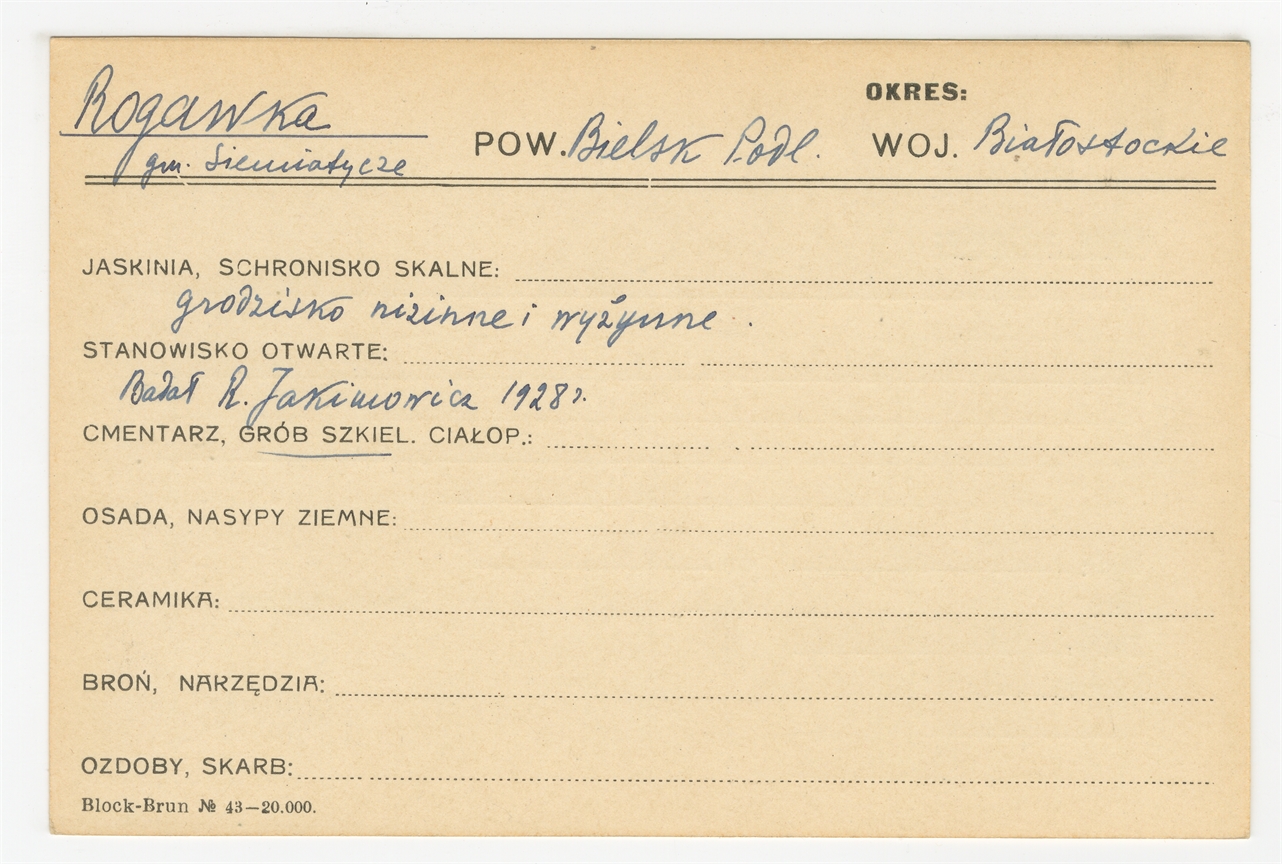 OKRES:
Rogawka
POW. Bielsk Podl. WOJ. Białostockie
gm. Siemiatycze
JASKINIA, SCHRONISKO SKALNE:
grodzisko nizinne i wyżynne.
STANOWISKO OTWARTE:
Badał R. Jakimowicz 1928 r.
CMENTARZ, GRÓB SZKIEL. CIAŁOP.:
OSADA, NASYPY ZIEMNE:
CERAMIKA:
BROŃ, NARZĘDZIA:
OZDOBY, SKARB:
Block-Brun № 43—20.000.